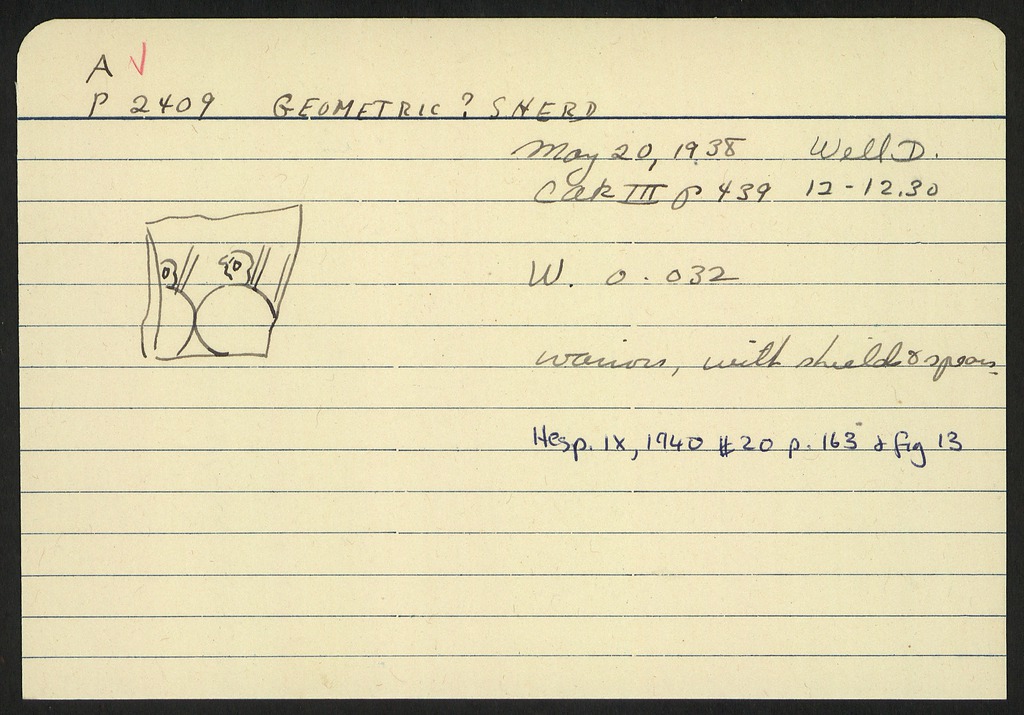 A ✓
P 2409 GEOMETRIC? SHERD
May 20, 1938 Well D.
Cak III p 439 12-12.30
W. 0.032
warriors, with shields & spears
Hesp. IX, 1940 #20 p. 163 & fig 13